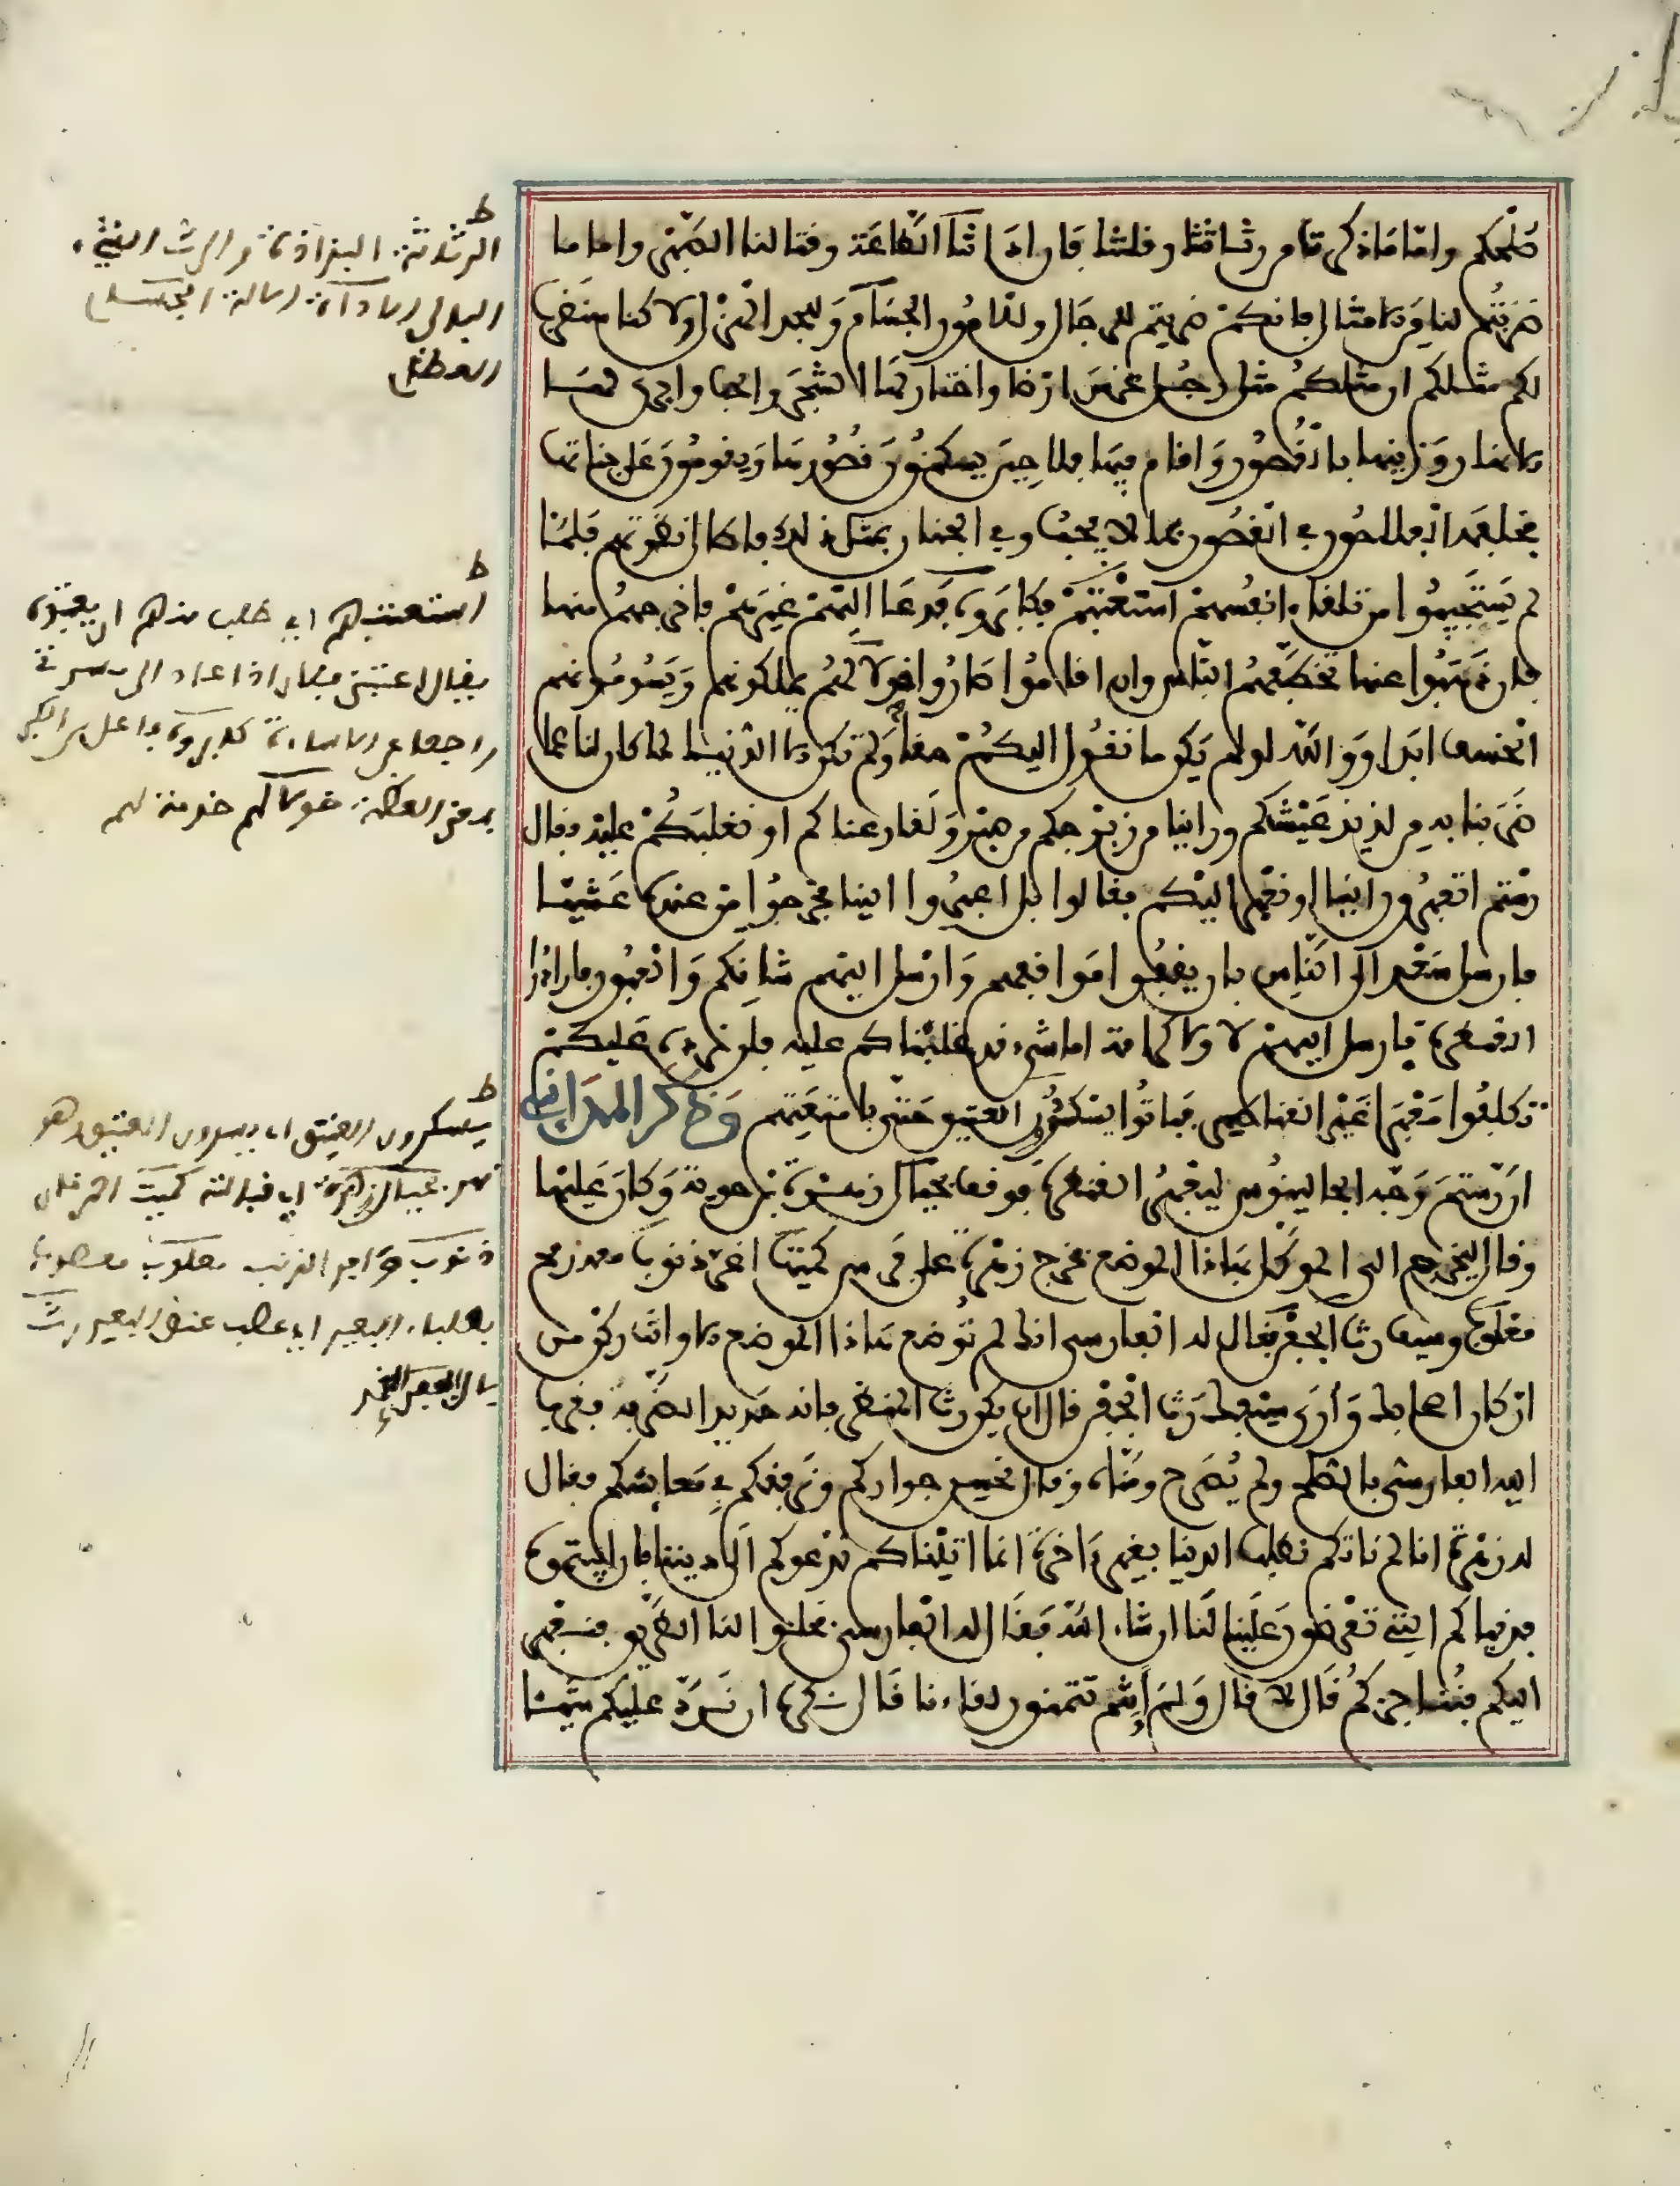 صلحكم واما ما ذكرتم من رثاثتنا وقلتنا فان اداتنا الطاعة وقتالنا الصبر واما ما
ضربتم لنا من الامثال فانكم ضربتم للرجال وللامور الجسام وللجد الهزل ولاكنا سنضرب
لكم مثلكم ان مثلكم مثل رجل غرس ارضا واختار لها الشجر والحب واجرى لها
الانهار وزينها بالقصور واقام فيها فلاحين يسكنون قصورها ويقومون على جناتها
فخلفه الفلاحون في القصور بما لا يحب وفي الجنان بمثل ذلك فاطال نظرتهم فلما
لم يستحيوا من تلقاء انفسهم استعتبهم فكابروه فدعا اليهم غيرهم فاخرجهم منها
فان ذهبوا عنها تخطفهم الناس وان اقاموا صاروا خولا لهم يملكونهم ويسومونهم
الخسف ابدا ووالله لو لم يكن ما نقول اليكم حقا ولم تكن الا الدنيا لما كان لنا عما
ضرينا به من لذيذ عيشكم وراينا من زبرجكم من صبر ولقارعناكم او نغلبكم عليه فقال
رستم اتعبرون الينا او نعبر اليكم فقالوا بل اعبروا الينا فخرجوا من عنده عشيا
فارسل سعد الى الناس بان يقفوا مواقفهم وارسل اليهم شانكم والعبور فارادوا
القنطرة فارسل اليهم لا ولا كرامة اما شيء قد غلبناكم عليه فلن نرده عليكم
تكلفوا معبرا غير القناطير فباتوا يسكرون العتيق حتى بامتعتهم وذكر المدايني
ان رستم وجه الجالينوس ليعبر القنطرة فوقف بحيال زهرة بن حوية وكان عليها
وقال ليخرج الي الموكل بهاذا الموضع فخرج زهرة على فرس كميت اغر ذنوب معه رمح
معلوب وسيف رث الجفن فقال له الفارسي انك لم توضع بهاذا الموضع الا وانت ركن من
اركان اصحابك وارى سيفك رث الجفن قال ان يكن رث المنظر فانه حديد الضربة فعرض
اليه الفارسي بالصلح ولم يصرح وقال نحسن جواركم ونرفقكم في معايشكم فقال
له زهرة انا لم ناتكم نطلب الدنيا بغير ءاخرة انما اتيناكم ندعوكم الى ديننا فان ابيتموه
فدنياكم التي تعرضون علينا لنا ان شاء الله فقال له الفارسي فخلوا لنا الطريق فنعبر
اليكم فنناجزكم قال لا قال ولم انتم تتمنون لقاءنا قال نكره ان نرد عليكم شيئا
ط
الرثاثة البذاذة والرث الشيء
البالي الاداة الالة المجلس
ط
استعتبهم اي طلب منهم ان يعتبوه
يقال اعتبني فلان اذا عاد الى مسرتي
راجعا عن الاساءة كابروه
خولا لهم خدمة لهم
ط
يسكرون العتيق اي يسدون العتيق وهو
نهر بحيال زهرة اي قبالته كميت احمر
ذنوب وافر الذنب معلوب معصوب
بعلباء البعير اي عصب عنق البعير رث